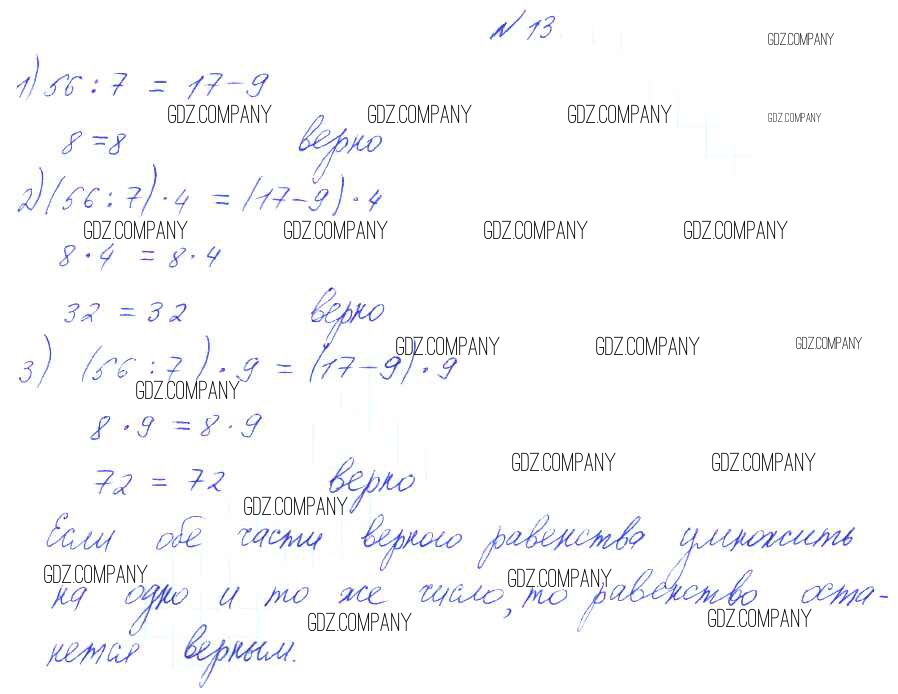 № 13
GDZ.COMPANY
1) 56 : 7 = 17 - 9
GDZ.COMPANY GDZ.COMPANY GDZ.COMPANY GDZ.COMPANY
8 = 8 верно
2) (56 : 7) · 4 = (17 - 9) · 4
GDZ.COMPANY GDZ.COMPANY GDZ.COMPANY GDZ.COMPANY
8 · 4 = 8 · 4
32 = 32 верно
GDZ.COMPANY GDZ.COMPANY GDZ.COMPANY
3) (56 : 7) · 9 = (17 - 9) · 9
GDZ.COMPANY
8 · 9 = 8 · 9
GDZ.COMPANY GDZ.COMPANY
72 = 72 верно
GDZ.COMPANY
Если обе части верного равенства умножить
GDZ.COMPANY GDZ.COMPANY
на одно и то же число, то равенство оста-
GDZ.COMPANY GDZ.COMPANY
нется верным.